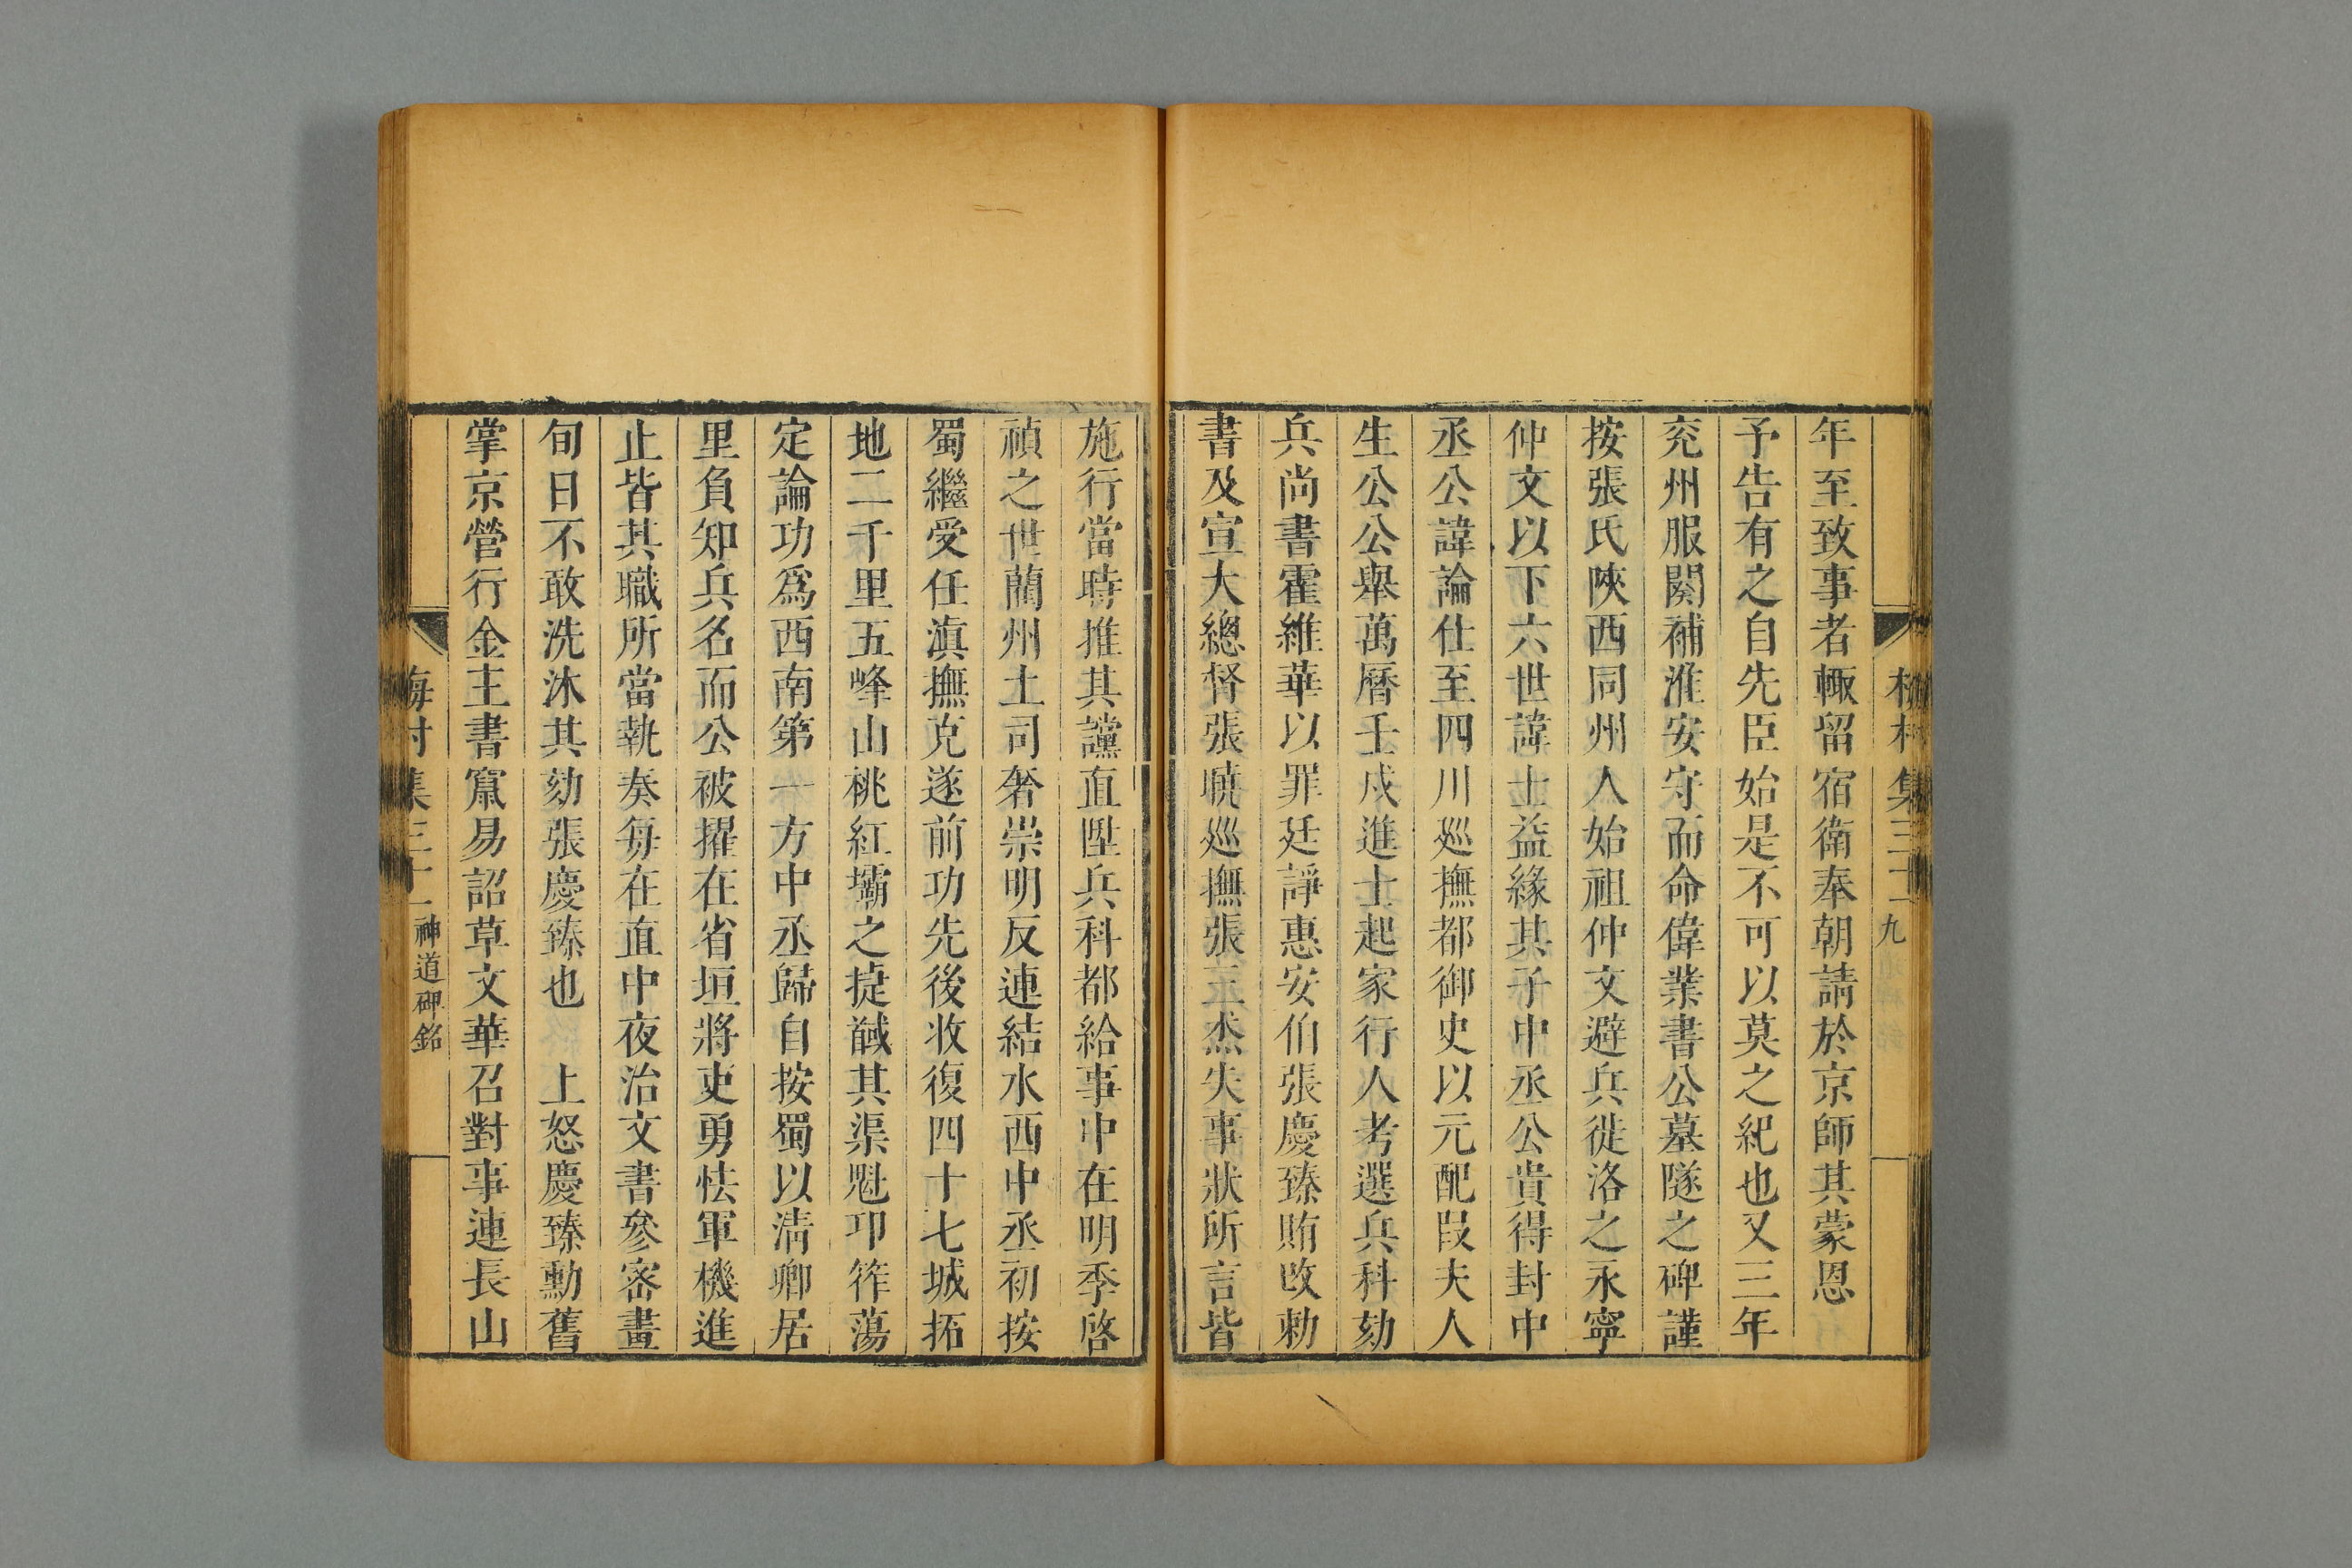 梅村集三十一 九
年至致事者輙留宿衛奉朝請於京師其蒙恩
予告有之自先臣始是不可以莫之紀也又三年
兖州服闋補淮安守而命偉業書公墓隧之碑謹
按張氏陜西同州人始祖仲文避兵徙洛之永寧
仲文以下六世諱士益緣其子中丞公貴得封中
丞公諱論仕至四川廵撫都御史以元配段夫人
生公公舉萬曆壬戌進士起家行人考選兵科劾
兵尚書霍維華以罪廷諍惠安伯張慶臻賄改勅
書及宣大總督張曉廵撫張三杰失事狀所言皆
施行當時推其讜直陞兵科都給事中在明季啓
禎之世藺州土司奢崇明反連結水西中丞初按
蜀繼受任滇撫克遂前功先後收復四十七城拓
地二千里五峰山桃紅壩之捷馘其渠魁卭筰蕩
定論功爲西南第一方中丞歸自按蜀以淸卿居
里負知兵名而公被擢在省垣將吏勇怯軍機進
止皆其職所當執奏每在直中夜治文書參密畫
旬日不敢洗沐其劾張慶臻也 上怒慶臻勳舊
掌京營行金主書竄易詔草文華召對事連長山
梅村集三十一 神道碑銘